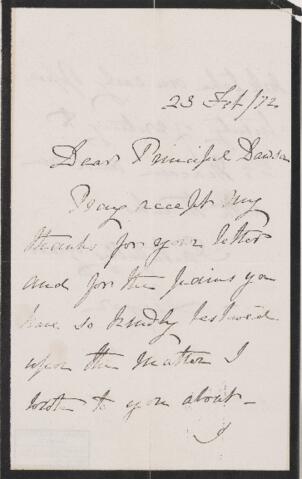 23 Feb/72
Dear Principal Dawson
Pray accept my
thanks for your letter
and for the pains you
have so kindly bestowed
upon the matter I
wrote to you about—
I